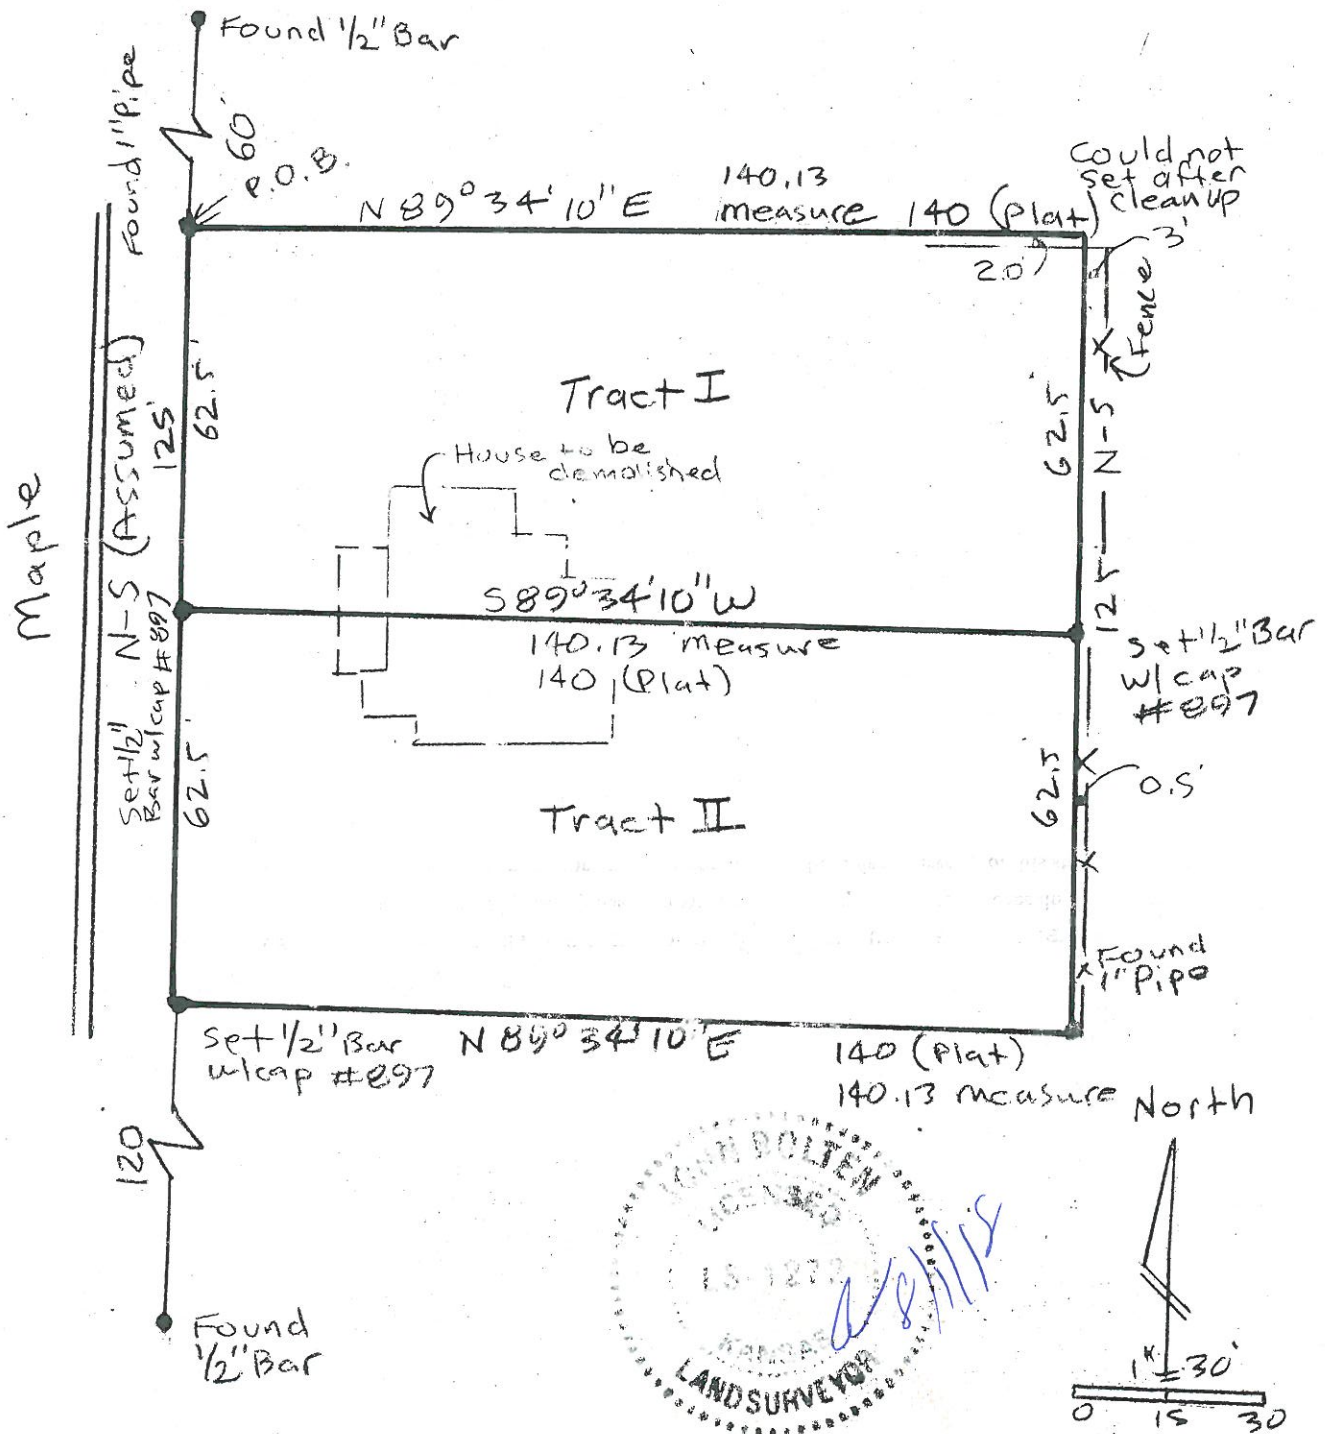 Found 1/2" Bar
Found 1" Pipe
60'
P.O.B.
N 89° 34' 10" E
140.13
measure
140 (Plat)
Could not
set after
cleanup
3'
2.0'
Fence
N-S (Assumed)
125'
62.5'
Tract I
62.5'
N-S
125
House to be
demolished
Maple
S 89° 34' 10" W
140.13 measure
140 (Plat)
Set 1/2"
Bar w/cap #897
Set 1/2" Bar
w/ cap
#897
62.5'
Tract II
62.5
0.5'
Found
1" Pipe
Set 1/2" Bar
w/cap #897
N 89° 34' 10" E
140 (Plat)
140.13 measure
North
120
JOHN BOLTEN
LICENSED
LS-1272
KANSAS
LAND SURVEYOR
8/1/15
Found
1/2" Bar
1" = 30'
0 15 30